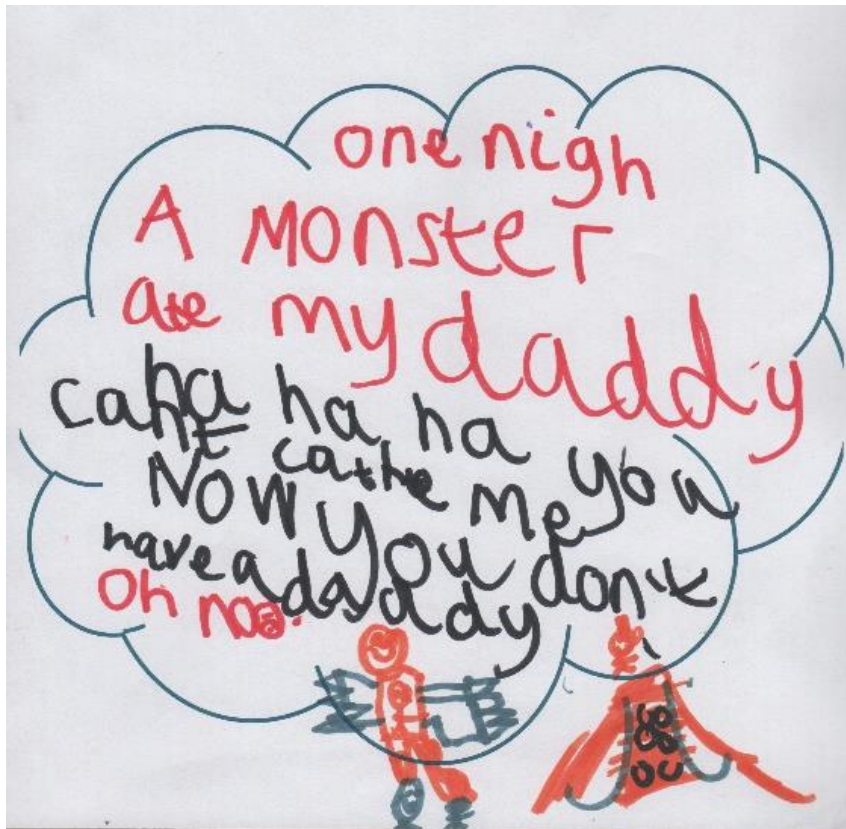 one nigh
A Monster
ate my daddy
ha ha ha
cant cathe me you
Now you don't
have a daddy
oh noo.